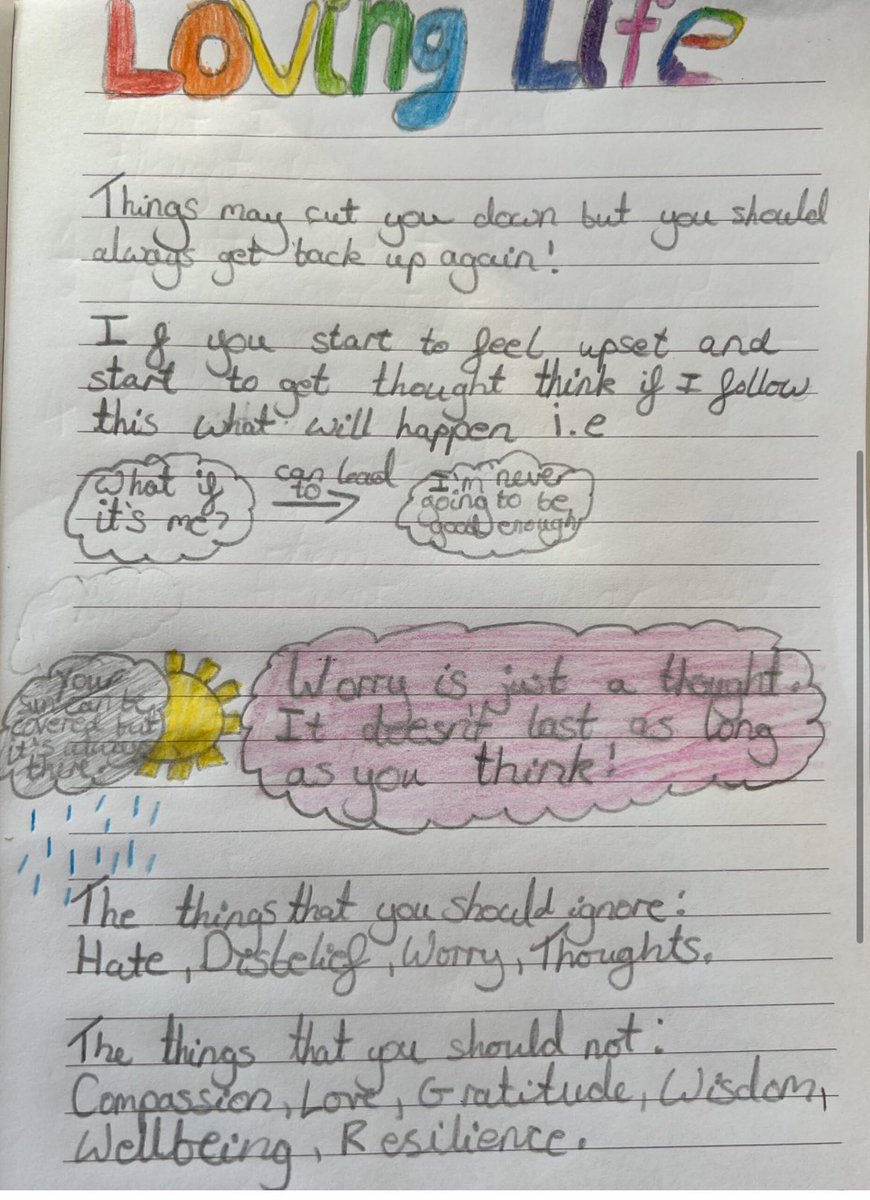 Loving Life
Things may cut you down but you should
always get back up again!
If you start to feel upset and
start to get thought think if I follow
this what will happen i.e
What if
it's me?
can lead
to
I'm never
going to be
good enough
Your
sun can be
covered but
it's always
there.
Worry is just a thought.
It doesn't last as long
as you think!
The things that you should ignore:
Hate, Disbelief, Worry, Thoughts.
The things that you should not:
Compassion, Love, Gratitude, Wisdom,
Wellbeing, Resilience.